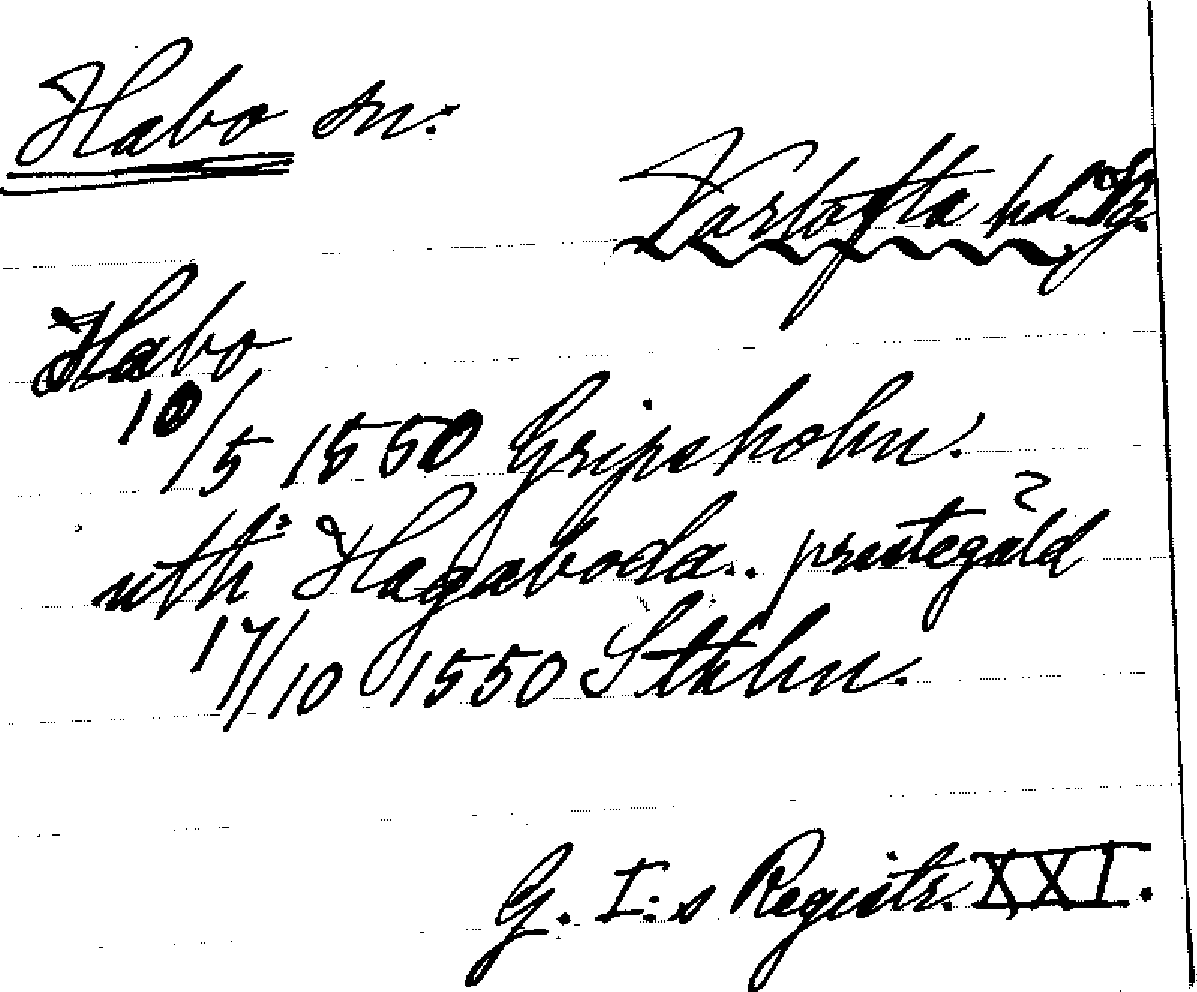 Habo sn.
Vartofta hd. Vg.
Habo
10/5 1550 Gripsholm.
uthi Hagaboda.. prestegäld
17/10 1550 Sthlm.
G. I:s Registr. XXI.